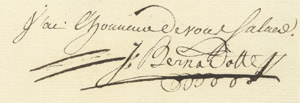 j'ai l'honneur de vous saluer.
J. Bernadotte